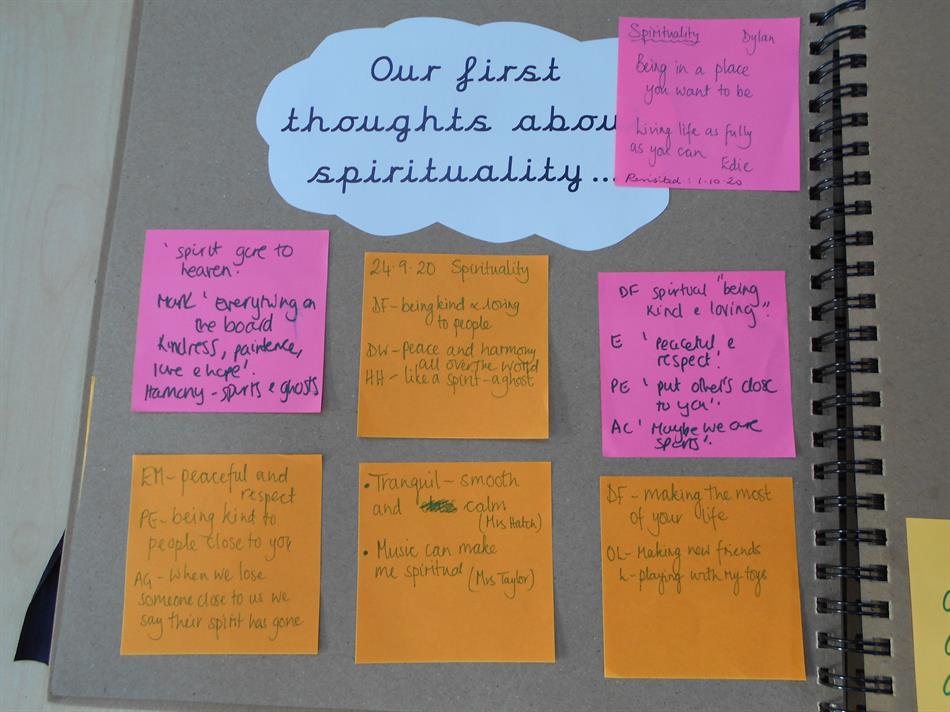 Our first
thoughts abou
spirituality...
Spirituality Dylan
Being in a place
you want to be
Living life as fully
as you can Edie
Revisited: 1.10.20
'spirit gone to
heaven'.
Mark 'everything on
the board
kindness, paintence,
love & hope'.
Harmony - spirits & ghosts
24.9.20 Spirituality
DF - being kind & loving
to people
DW - peace and harmony
all over the world
HH - like a spirit - a ghost
DF spiritual "being
kind & loving".
E 'peaceful &
respect'.
PE 'put other's close
to you'.
AC 'Maybe we are
EM - peaceful and
respect
PE - being kind to
people close to you
AG - when we lose
someone close to us we
say their spirit has gone
• Tranquil - smooth
and calm
(Mrs Hatch)
• Music can make
me spiritual (Mrs Taylor)
DF - making the most
of your life
OL - Making new friends
L - playing with my toys